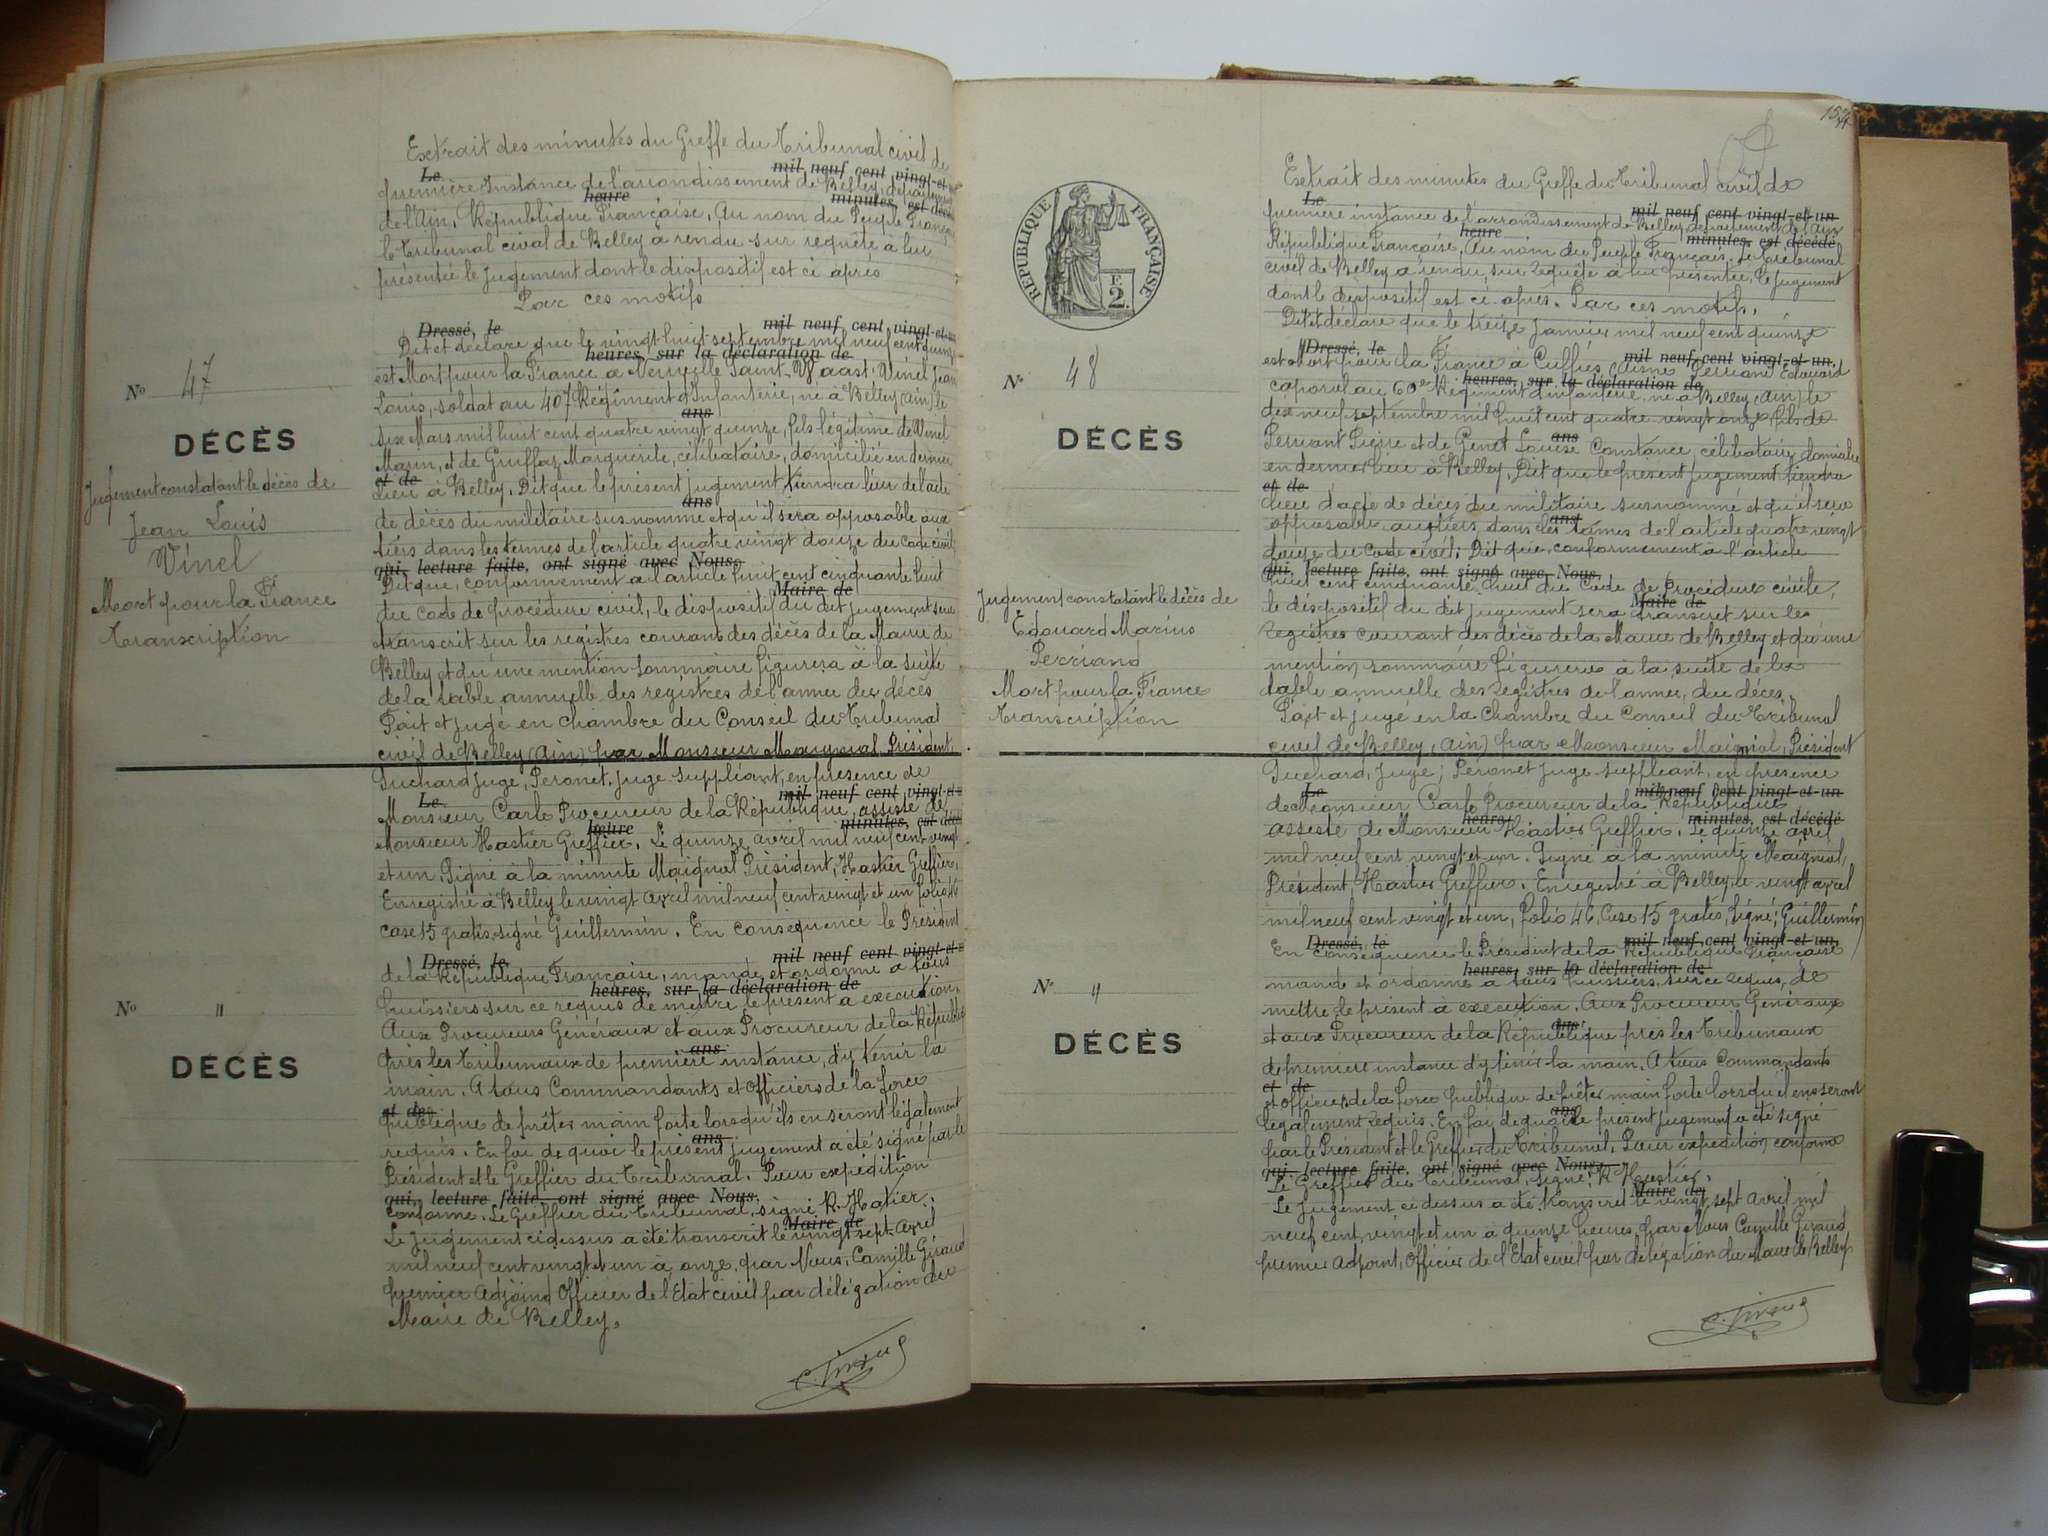 Extrait des minutes du Greffe du Tribunal civil de
Le mil neuf cent vingt-et-un
première Instance de l'arrondissement de Belley, département
heure minutes, est décédé
de l'Ain, République Française, Au nom du Peuple Français
le Tribunal cival de Belley à rendu sur requête à lui
présentée le jugement dont le dispositif est ci après
Par ces motifs
Dressé, le mil neuf cent vingt-et-un
Dit et déclare que le vingt huit septembre mil neuf cent quinze
heures, sur la déclaration de
est Mort pour la France à Neuville Saint-Waast, Vinel Jean
Louis, soldat au 407 Régiment d'Infanterie, né à Belley (Ain) le
ans
six Mars mil huit cent quatre vingt quinze, fils légitime de Vinel
Marin, et de Guiffaz Marguerite, célibataire, domicilié en dernier
et de
Lieu à Belley. Dit que le présent jugement tiendra lieu de l'acte
ans
de décès du militaire susnommé et qu'il sera opposable aux
tiers dans les termes de l'article quatre vingt douze du Code civil
qui, lecture faite, ont signé avec Nous,
Dit que, conformement à l'article huit cent cinquante huit
Maire de
du Code de procédure civil, le dispositif du dit jugement sera
transcrit sur les registres courant des décès de la Mairie de
Belley et qu'une mention sommaire figurera à la suite
de la table annuelle des registres de l'année du décès
Fait et jugé en chambre du Conseil du Tribunal
civil de Belley (Ain) par Monsieur Maignal, Président,
Guichard Juge, Peronet, Juge Suppléant, en présence de
Le mil neuf cent vingt-et-
Monsieur Carle Procureur de la République, assisté de
heure minutes, est décé
Monsieur Hastier Greffier. Le quinze avril mil neuf cent vingt
et un. Signé à la minute Maignal Président, Hastier Greffier,
Enregistré à Belley le vingt avril mil neuf cent vingt et un folio 46
case 15 gratis, signé Guillermin. En conséquence le Président
Dressé, le mil neuf cent vingt-et-
de la République Française, mande et ordonne à tous
heures, sur la déclaration de
huissiers sur ce requis de mettre le présent à execution.
Aux Procureurs Généraux et aux Procureur de la Républiq
ans
près les Tribunaux de première instance, d'y tenir la
main. A tous Commandants et Officiers de la force
et de
publique de prêter main forte lorsqu'ils en seront légalement
ans
requis. En foi de quoi le présent jugement a été signé par le
Président et le Greffier du Tribunal. Pour expédition
qui, lecture faite, ont signé avec Nous,
conforme. Le Greffier du Tribunal, signé R. Hastier.
Maire de
Le jugement ci dessus a été transcrit le vingt sept Avril
mil neuf cent vingt et un à onze, par Nous, Camille Giraud
premier Adjoind Officier de l'Etat civil par délégation du
Maire de Belley.
C. Giraud
No 47
DÉCÈS
Jugement constatant le décès de
Jean Louis
Vinel
Mort pour la France
Transcription
No "
DÉCÈS
152
RÉPUBLIQUE FRANÇAISE
E
2.
No 48
DÉCÈS
Jugement constatant le décès de
Edouard Marius
Perriand
Mort pour la France
Transcription
No "
DÉCÈS
Extrait des minutes du Greffe du Tribunal civil de
Le mil neuf cent vingt-et-un
première instance de l'arrondissement de Belley, département de l'Ain
heure minutes, est décédé
République Française, Au nom du Peuple Français. Le Tribunal
civil de Belley a rendu, sur requête à lui présentée, le jugement
dont le dispositif est ci-après. Par ces motifs,
Dit et déclare que le treize Janvier mil neuf cent quinze
Dressé, le mil neuf cent vingt-et-un,
est Mort pour la France à Cuffies, Perriand Edouard
heures, sur la déclaration de
caporal au 60e Régiment d'infanterie, né à Belley (Ain) le
dix neuf septembre mil huit cent quatre vingt onze fils de
ans
Perriant Pierre et de Genet Louise Constance, célibataire, domicilié
en dernier lieu à Belley, Dit que le présent jugement tiendra
et de
lieu d'acte de décès du militaire susnommé et qu'il sera
ans
opposable aux tiers dans les termes de l'article quatre vingt
douze du Code civil; Dit que, conformement à l'article
qui, lecture faite, ont signé avec Nous,
huit cent cinquante huit du Code de Procédure civile,
Maire de
le dispositif du dit jugement sera transcrit sur les
registres courant des décès de la Mairie de Belley et qu'une
mention sommaire figurera à la suite de la
table annuelle des registres de l'année, du décès.
Fait et jugé en la Chambre du Conseil du Tribunal
civil de Belley, (Ain) par Monsieur Maignal, Président
Guichard, Juge; Péronet Juge-suppléant, en présence
Le mil neuf cent vingt-et-un
de Monsieur Carle Procureur de la République,
heure minutes, est décédé
assisté de Monsieur Hastier Greffier. Le quinze avril
mil neuf cent vingt et un. Signé à la minute Maignal,
Président, Hastier Greffier. Enregistré à Belley, le vingt avril
mil neuf cent vingt et un, folio 46, Case 15 gratis, signé; Guillermin
Dressé, le mil neuf cent vingt-et-un,
En conséquence le Président de la République Française
heures, sur la déclaration de
mande et ordonne à tous huissiers, sur ce requis, de
mettre le présent à execution. Aux Procureur Généraux
ans
et aux Procureur de la République près les Tribunaux
de première instance d'y tenir la main. A tous Commandants
et de
et Officiers de la force publique de prêter main forte lorsqu'il en seront
ans
légalement requis. En foi de quoi le présent jugement a été signé
par le Président et le Greffier du Tribunal. Pour expédition, conforme
qui, lecture faite, ont signé avec Nous,
Le Greffier du Tribunal, signé, R. Hastier.
Maire de
Le jugement ci dessus a été transcrit le vingt sept avril mil
neuf cent, vingt et un à quinze heures, par Nous Camille Giraud
premier Adjoint, Officier de l'Etat civil par délégation du Maire de Belley.
C. Giraud